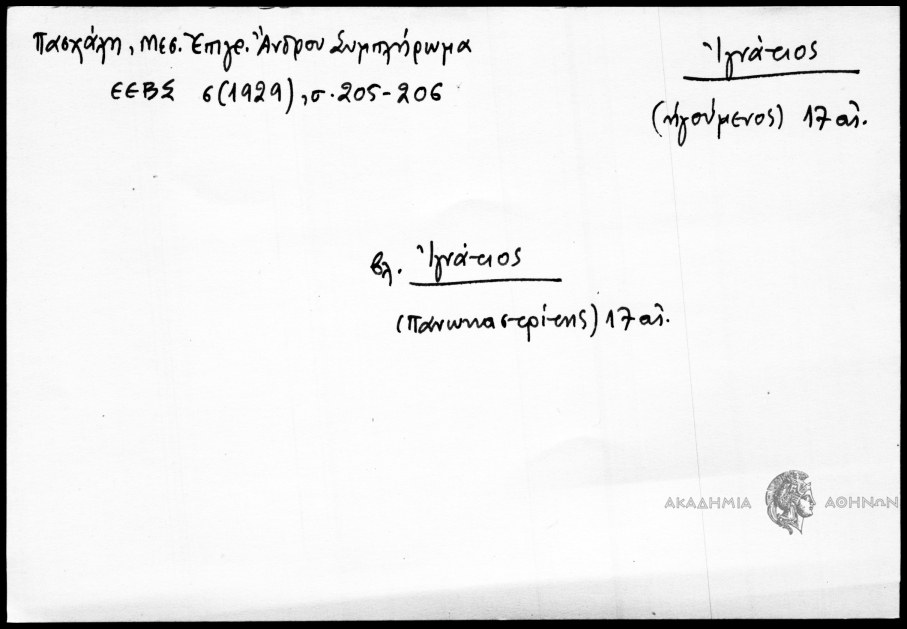 Πασχάλη, Μεσ. Ἐπιγρ. Ἄνδρου Συμπλήρωμα
ΕΕΒΣ 6(1929), σ. 205-206
Ἰγνάτιος
(ἡγούμενος) 17 αἰ.
βλ. Ἰγνάτιος
(Πανωκαστρίτης) 17 αἰ.
ΑΚΑΔΗΜΙΑ ΑΘΗΝΩΝ